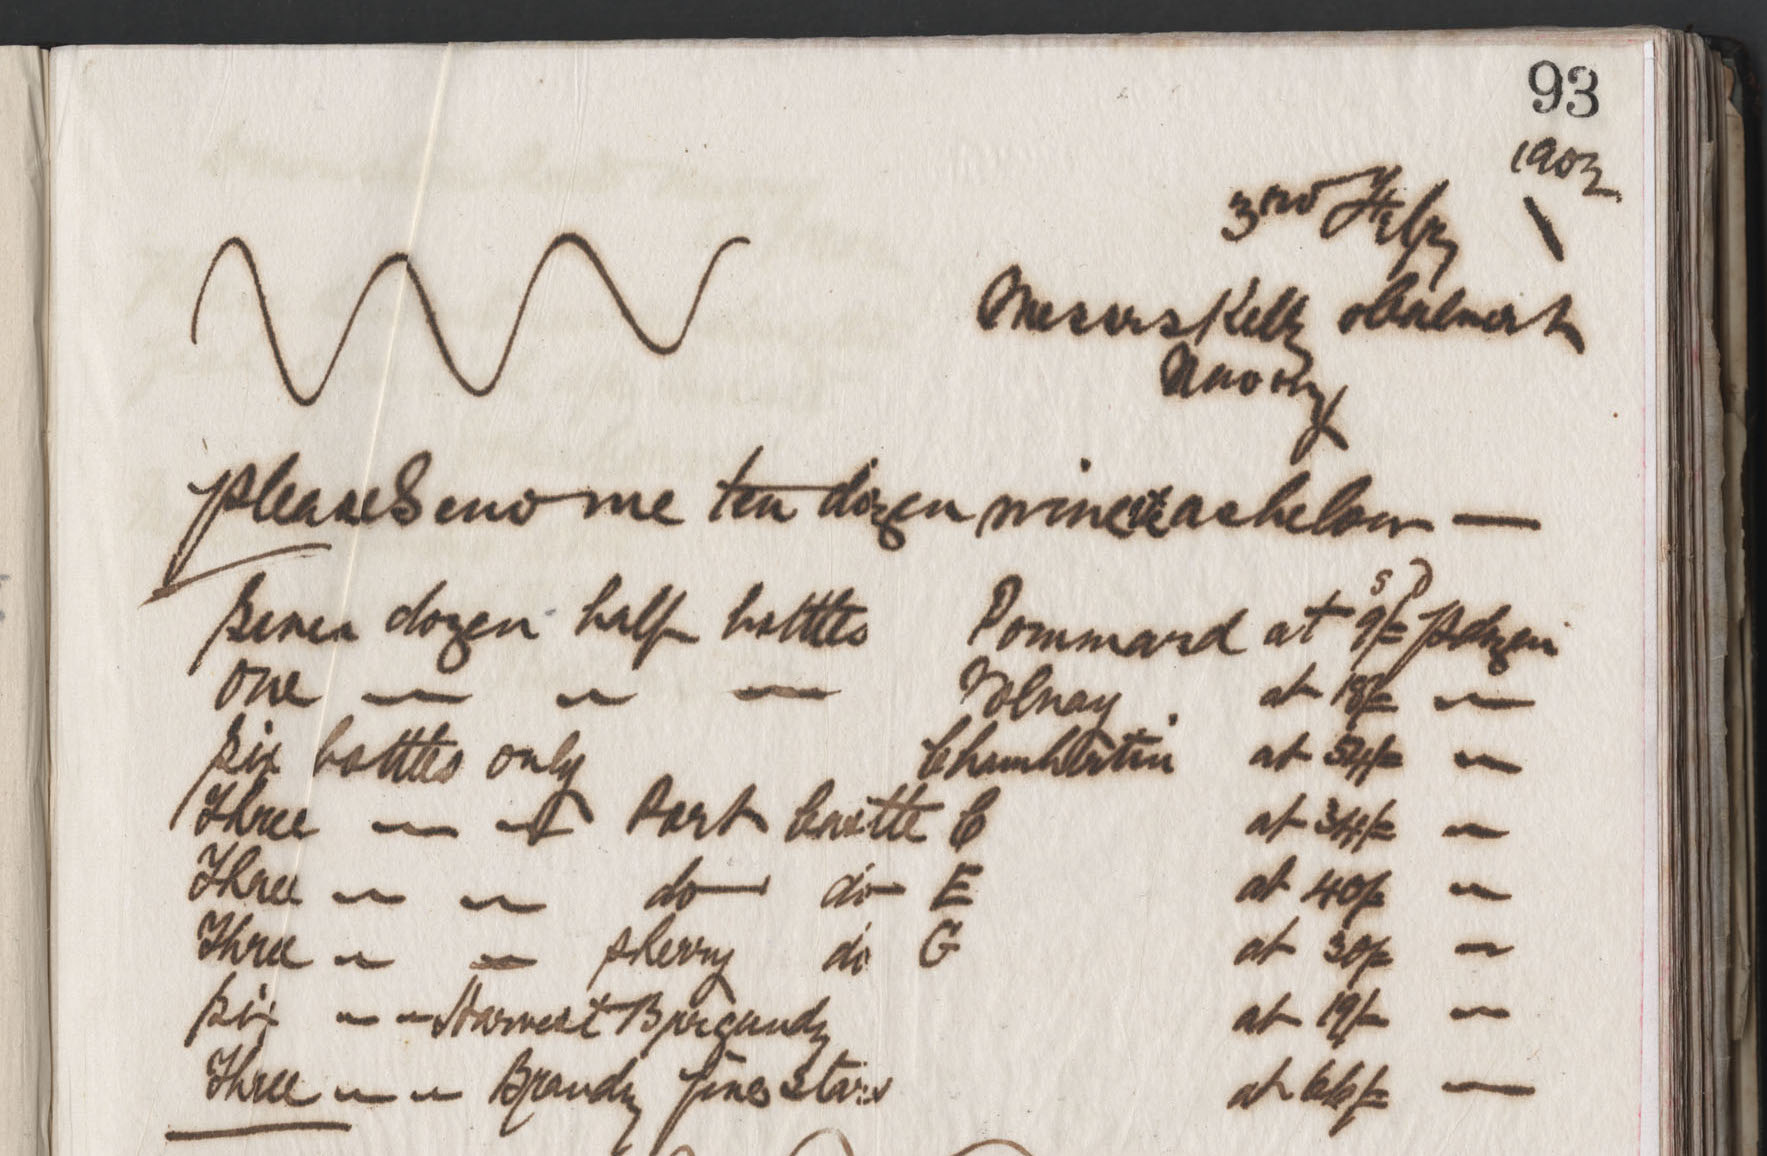 93
1902
3rd Feby
Messrs Kelly
Newry
Please Send me ten dozen wine etc as below —
s D
Seven dozen half bottles Pommard at 9/= p dozen
One — — — Volnay at 18/= —
Six bottles only Chambertin at 54/= —
Three — — Port Castle C at 34/= —
Three — — do do E at 40/= —
Three — — Sherry do G at 30/= —
Six — — Harvest Burgundy at 19/= —
Three — — Brandy stars at 66/= —